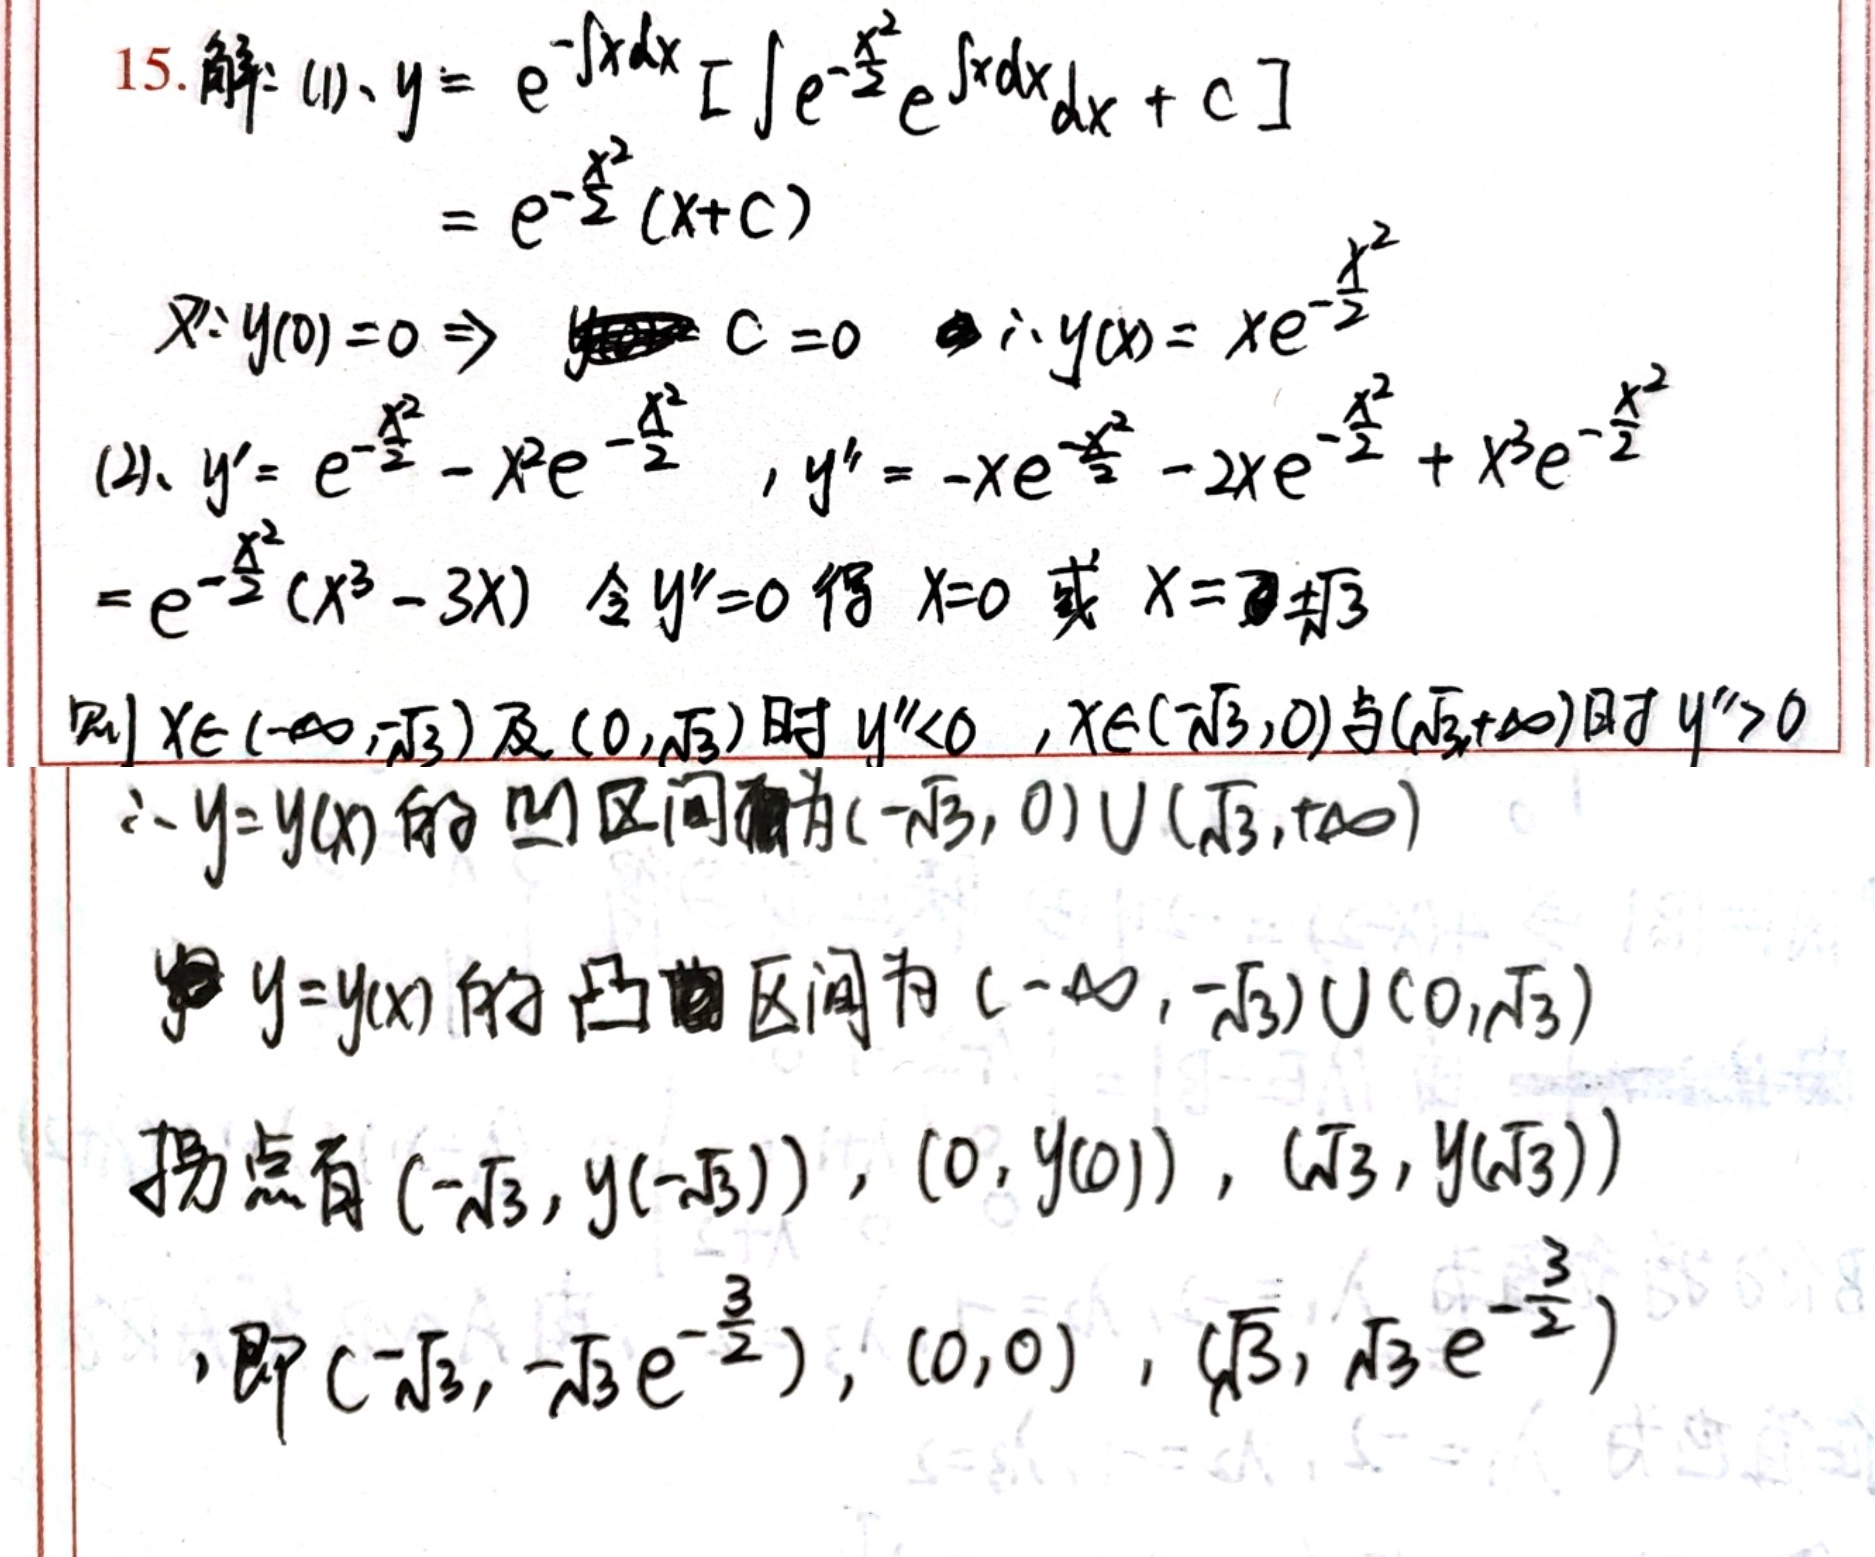 15. 解: (1)、y = e^{-∫xdx} [ ∫e^{-\frac{x^2}{2}} e^{∫xdx} dx + C ]
= e^{-\frac{x^2}{2}} (x+C)
又∵y(0)=0 ⇒ C=0 ∴y(x)= xe^{-\frac{x^2}{2}}
(2)、y′= e^{-\frac{x^2}{2}} - x^2e^{-\frac{x^2}{2}} , y″ = -xe^{-\frac{x^2}{2}} -2xe^{-\frac{x^2}{2}} + x^3e^{-\frac{x^2}{2}}
= e^{-\frac{x^2}{2}} (x^3-3x) 令y″=0 得 x=0 或 x=±√3
则x∈(-∞,-√3)及(0,√3)时y″<0 ,x∈(-√3,0)与(√3,+∞)时y″>0
∴y=y(x)的凹区间为(-√3,0)∪(√3,+∞)
y=y(x)的凸区间为(-∞,-√3)∪(0,√3)
拐点有(-√3,y(-√3)),(0,y(0)),(√3,y(√3))
,即(-√3,-√3e^{-\frac{3}{2}}),(0,0),(√3,√3e^{-\frac{3}{2}})